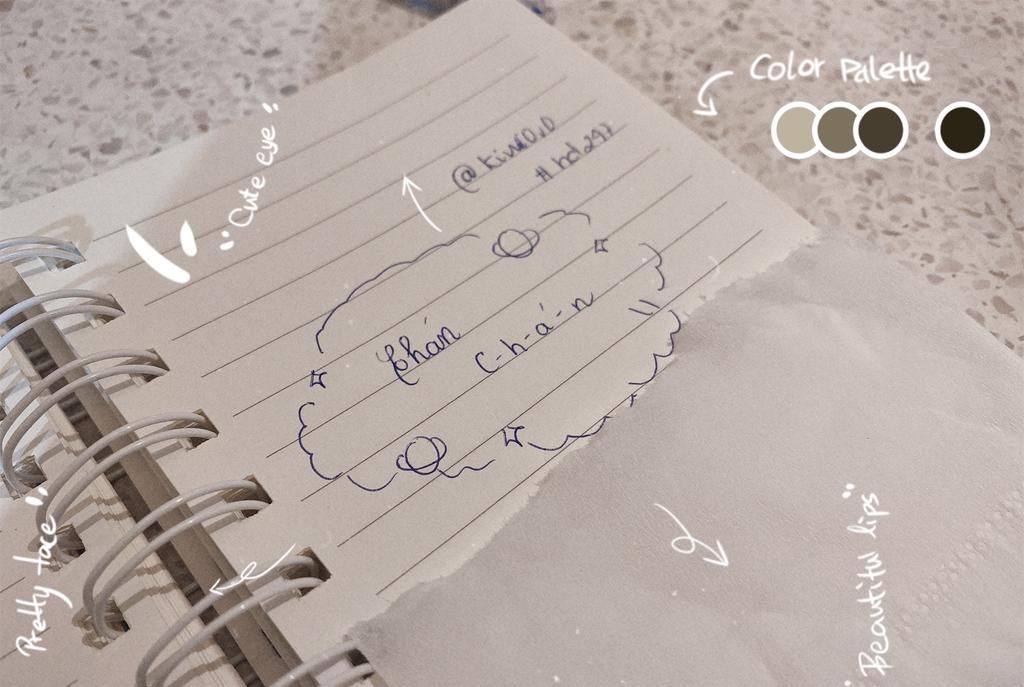 Color Palette
"Cute eye"
#hd297
Chán
C-h-á-n
Pretty face"
"Beautiful lips